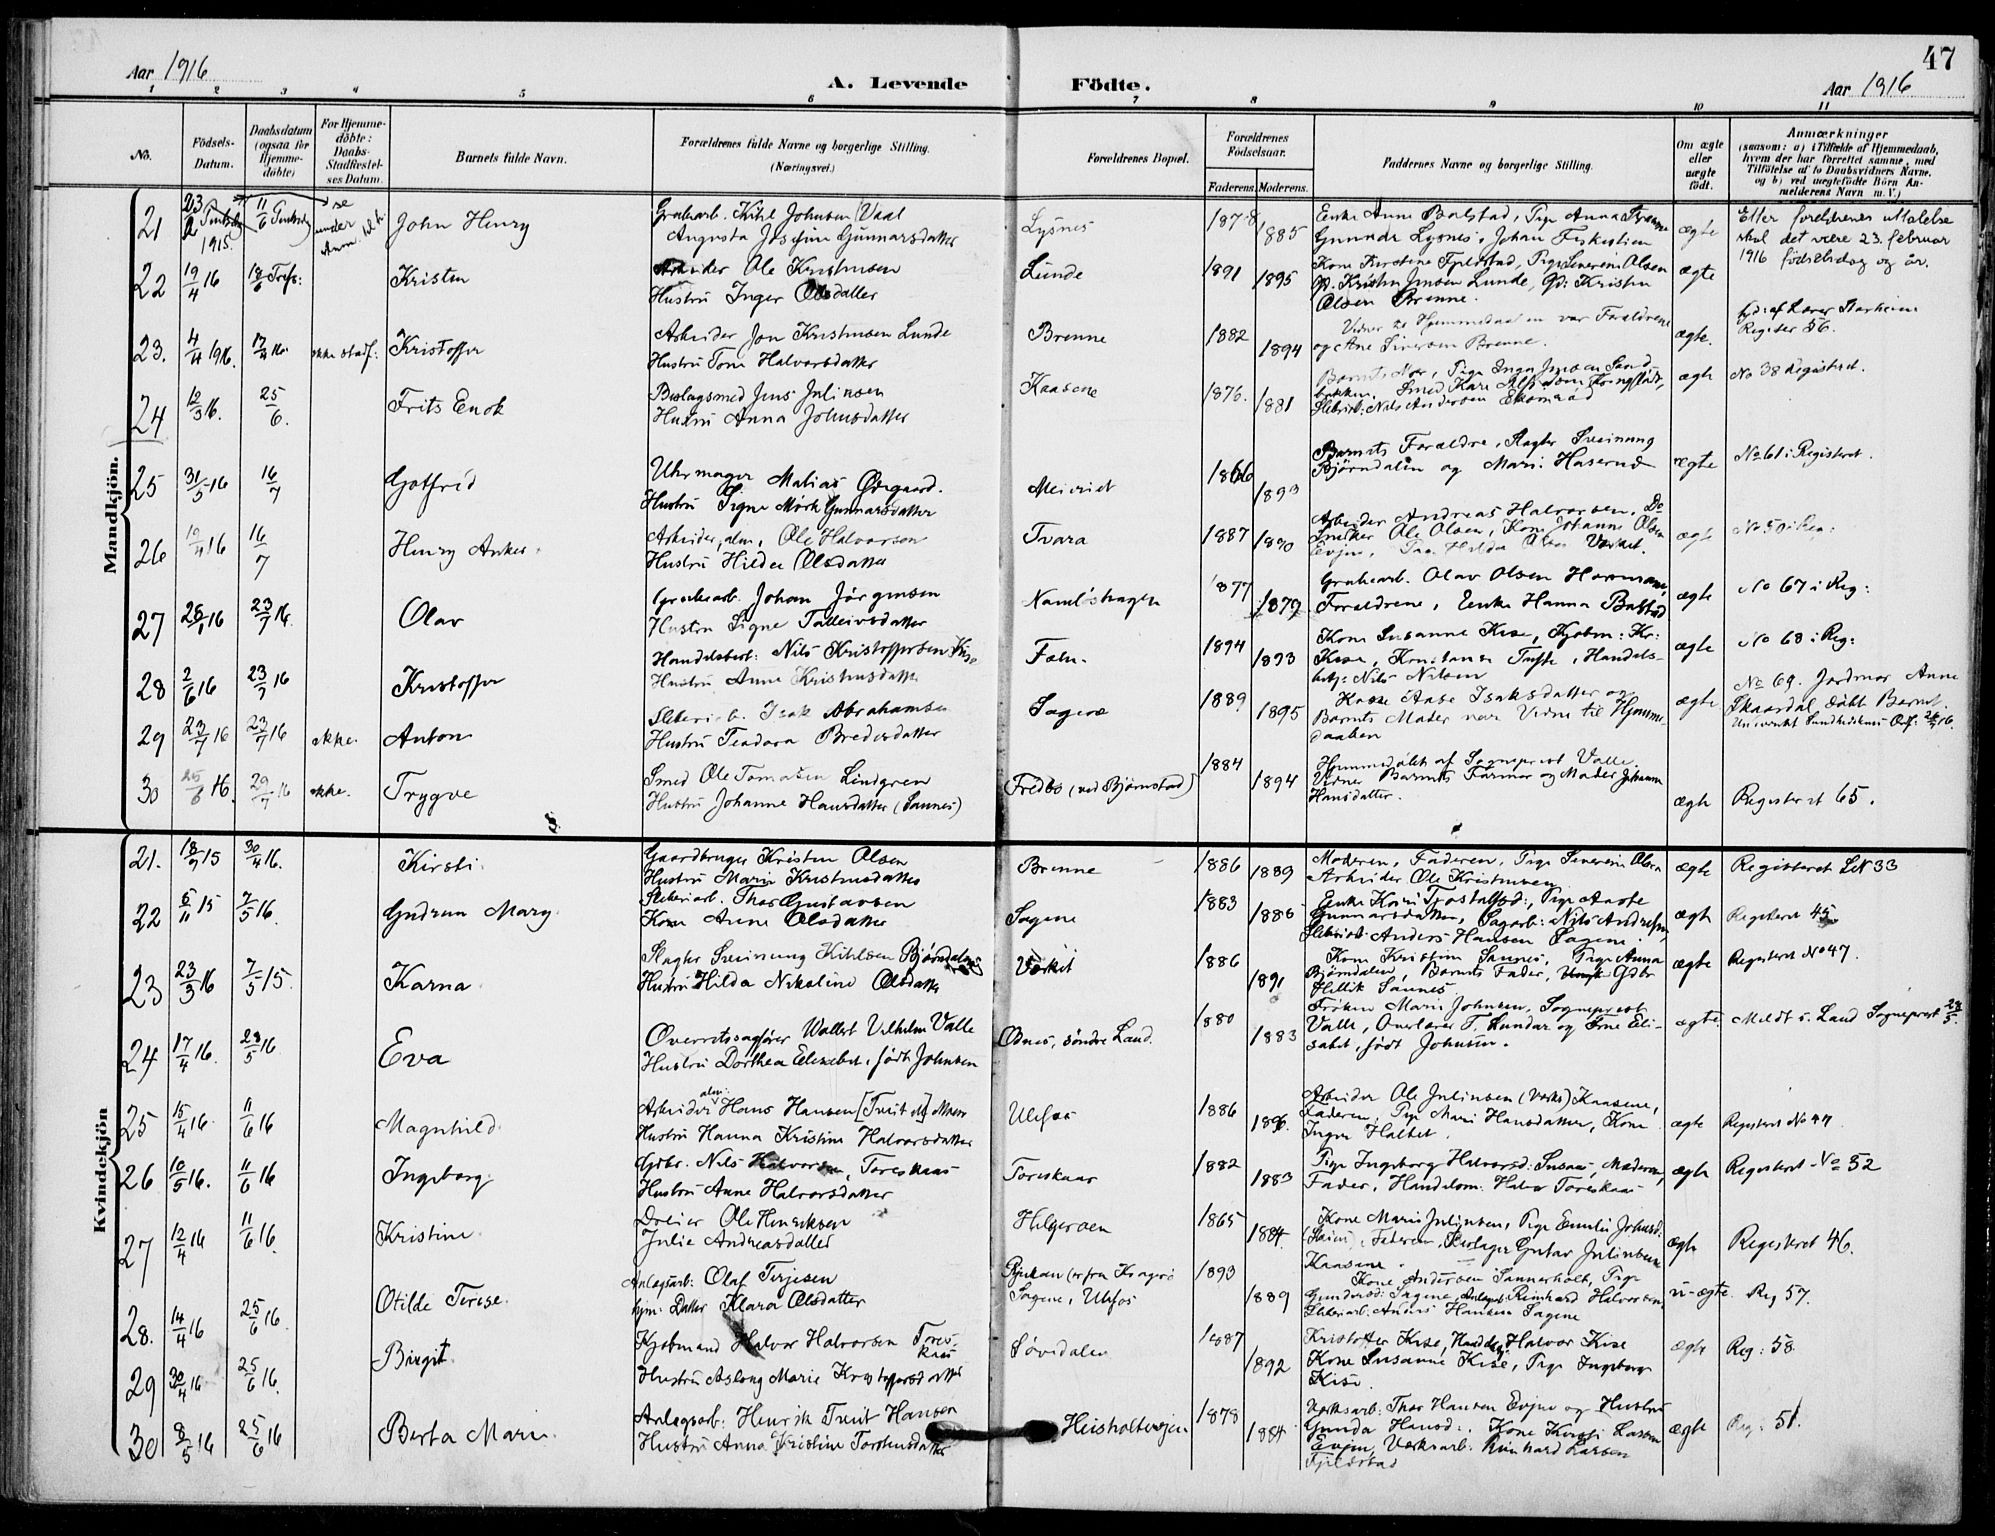 47
Aar 1916
A. Levende
Födte.
Aar 1916
1 2 3 4 5 6 7 8 9 10 11
No.
Födsels-
Datum.
Daabsdatum
(ogsaa for
Hjemme-
döbte)
For Hjemme-
döbte:
Daabs-
Stadfæstel-
ses Datum.
Barnets fulde Navn.
Forældrenes fulde Navne og borgerlige Stilling.
(Næringsvei.)
Forældrenes Bopæl.
Forældrenes
Födselsaar.
Faderens. Moderens.
Faddernes Navne og borgerlige Stilling.
Om ægte
eller
uægte
födt.
Anmærkninger
(saasom: a) i Tilfælde af Hjemmedaab,
hvem der har forrettet samme, med
Tilföielse af to Daabsvidners Navne,
og b) ved uægtefödte Börn An-
melderens Navn m. V.)
Mandkjön.
21 John Henry
Grubearb. Kitil Johnsen Vaal
Augusta Josefine Gunnarsdatter
Lysnes 1878 1885
Enke Anne Bolstad, Pige Anna
Gunnar Lysnes, Johan
ægte
Etter foreldrenes uttalelse
skal det være 23. februar
1916 födselsdag og år.
22 19/4 16 Kristen
Arbeider Ole Kristensen
Hustru Inger Olsdatter
Lunde 1891 1895
Kone Kirstine Fjeldstad, Pige Severine Olsen
Kristen Jensen Lunde, Kristen
Olsen Brenne.
ægte
23. 4/4 1916. ikke stadf: Kristoffer
Arbeider Jon Kristensen Lunde
Hustru Tone Halvorsdatter
Brenne 1882 1894
var Forældrene
og Ane Siversen Brenne.
ægte.
Register 56.
24 12/3 16. 25/6. Frits Enok
Beslagsmed Jens Julinsen
Hustru Anna Johnsdatter
Kaasene 1876. 1881
Barnets Mor, Pige Inga Jensen
Sliberiarb: Nils Andersen
ægte
No 38 Registeret.
25 31/5 16 16/7 Gotfred
Uhrmager Matias Ødegaard.
Hustru Signe Mørk Gunnarsdatter
Meieriet 1866 1893
Barnets Forældre, Slagter Sveinung
Bjørndalen og Mari Haserud
ægte
No 61 i Registeret.
26 19/4 16 16/7 Henry Anker.
Arbeider, alm., Ole Halvorsen
Hustru Hilda Olsdatter
Tvara 1887 1890
Arbeider Andreas Halvorsen, Do
Snedker Ole Olsen, Kone Johanne Olsen
Evjen, Hilda Olsen Verket.
ægte
No 50 i Reg:
27 23/7 16. Olav
Grubearb. Johan Jörgensen
Hustru Signe Talleivsdatter
Namløshagen 1877 1879
Grubearb. Olav Olsen
Forældrene, Enke Hanna Bakstad
ægte
No 67 i Reg:
28 2/6 16 23/7 16 Kristoffer
Handelsbest: Nils Kristoffersen Kise
Hustru Anne Kristensdatter
Fæhn. 1894 1893
Kone Susanne Kise, Kjøbm: Kr:
Kise, Konstance Tufte, Handels-
betj: Nils Nilsen
ægte
No 68 i Reg:
29 23/7 16 23/7 16 ikke. Anton
Sliberiarb. Isak Abrahamsen
Hustru Teodora Bredesdatter
Sagene 1889 1895
Kone Aase Isaksdatter og
Barnets Moder var Vidne til Hjemme-
daaben
ægte
No 69. Jordmor Anne
Skaardal døbt Barnet.
30 25/6 16. 29/7 16 ikke. Trygve
Smed Ole Tomasen Lindgren
Hustru Johanne Hansdatter (Sannes)
Fredbo (ved Bjørnstad) 1884 1894
Hjemmedøbt af Sogneprest Valle.
Vidner Barnets Farmor og Moder Johanne
Hansdatter.
ægte
Registeret 65.
Kvindekjön
21. 18/9 15 30/4 16. Kirsti.
Gaardbruger Kristen Olsen
Hustru Maria Kristensdatter
Brenne 1886 1889
Moderen, Faderen, Pige Severine Olsen
Arbeider Ole Kristensen
ægte
Registeret No 33
22 6/11 15 7/5 16. Gudrun Mary.
Sliberiarb. Thor Gustavsen
Kone Anne Olsdatter
Sagene 1883 1886
Enke Kari Trostalsd:, Pige Aaste
Gunnarsdatter, Sagarb: Nils Andersen,
Sliberiarb: Anders Hansen Sagene.
ægte
Registeret 45
23 23/3 16 7/5 15. Karna.
Slagter Sveinung Kittilsen Bjørndalen
Hustru Hilda Nikoline Olsdatter
Verket 1886 1891
Kone Kristine Sannes, Pige Anna
Bjørndalen, Barnets Fader, Gdbr
Hellik Sannes
ægte
Registeret No 47.
24 17/4 16. 28/5 16. Eva
Overretssagfører Wallert Vilhelm Valle
Hustru Dorthea Elisabet, født Johnsen
Odnes, søndre Land. 1880 1883
Frøken Marie Johnsen, Sogneprest
Valle, Overlærer T. Lundar og Frue Eli-
sabet, født Johnsen.
ægte
Meldt s. Land Sogneprest 23/5.
25 15/4 16. 11/6 16 Magnhild.
Arbeider alm: Hans Hansen
Hustru Hanna Kristine Halvorsdatter
Ulefos 1886 1896.
Arbeider Ole Julinsen (Verks) Kaasene,
Faderen, Pige Mari Hansdatter, Kone
Inger Haltet.
ægte
Registeret No 44
26 10/5 16. 11/6 16 Ingeborg.
Gdbr. Nils Halvorsen Toreskaas
Hustru Anne Halvorsdatter
Toreskaas 1882 1883
Pige Ingeborg Halvorsd: Susaas, Moderen,
Fader, Handelsm: Halvor Toreskaas
ægte
Registeret No 52
27 12/4 16 11/6 16. Kristine.
Dreier Ole Henriksen
Julie Andreasdatter
Helgeroen 1865 1884.
Kone Marie Julinsen, Pige Emilie Johnsd:
Faderen, Beslager Gustav Julinsen
Kaasene.
ægte
Registeret 46.
28. 14/4 16 25/6 16. Otilde Terese.
Anlægsarb: Olaf Terjesen
hjm: Datter Klara Olsdatter
Rjukan (er fra Kragerø
Sagene, Ulefos 1893 1889
Kone Andersen Sannerholt, Pige
Gundersd: Sagene, Anlægsarb. Reinhard Halvorsen,
Sliberiarb. Anders Hansen Sagene
u-ægte. Reg 57.
29 30/4 16 25/6 16. Birgit.
Kjøbmand Halvor Halvorsen Tores-
kaas
Hustru Aslaug Marie Kristoffersdatter
Søvidalen 1887 1892
Kristoffer Kise, Halvor Kise
Kone Susanne Kise, Pige Ingeborg
Kise.
ægte Reg: 58.
30 8/5 16 25/6 16 Berta Marie.
Anlægsarb: Henrik Hansen
Hustru Anna Kristine Torstensdatter
Heisholtveien 1878 1884
Verksarb: Thor Hansen Evjen og Hustru
Gunda Hansd:, Kone Larsen
Evjen, Verksarb: Reinhard Larsen
Fjeldstad
ægte Reg: 51.